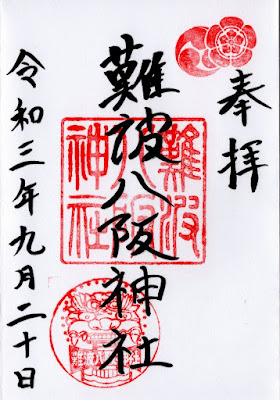 奉拝
難波八阪神社
難波
八阪
神社
難波八阪神社
令和三年九月二十日